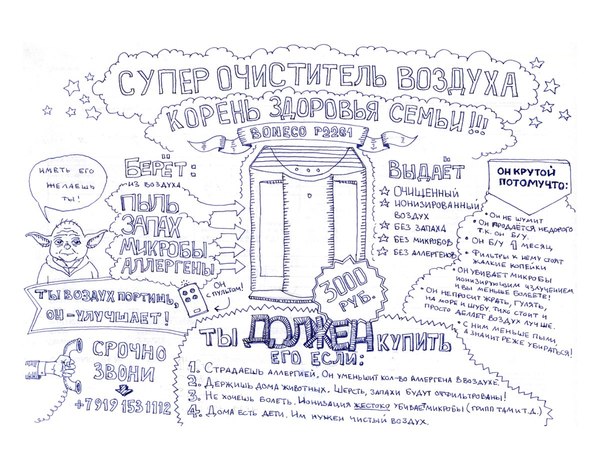 СУПЕР ОЧИСТИТЕЛЬ ВОЗДУХА
КОРЕНЬ ЗДОРОВЬЯ СЕМЬИ!!!
BONECO P2261
ИМЕТЬ ЕГО
ЖЕЛАЕШЬ
ТЫ!
БЕРЁТ:
ИЗ ВОЗДУХА
ПЫЛЬ
ЗАПАХ
МИКРОБЫ
АЛЛЕРГЕНЫ
ТЫ ВОЗДУХ ПОРТИШЬ,
ОН - УЛУЧШАЕТ!
ОН
С ПУЛЬТОМ!
СРОЧНО
ЗВОНИ
+7 919 153 1112
ВЫДАЁТ
ОЧИЩЕННЫЙ
ИОНИЗИРОВАННЫЙ
ВОЗДУХ
БЕЗ ЗАПАХА
БЕЗ МИКРОБОВ
БЕЗ АЛЛЕРГЕНОВ
3000
РУБ.
ОН КРУТОЙ
ПОТОМУЧТО:
• ОН НЕ ШУМИТ
• ОН ПРОДАЁТСЯ НЕДОРОГО
Т.К. ОН Б/У.
• ОН Б/У 1 МЕСЯЦ
• ФИЛЬТРЫ К НЕМУ СТОЯТ
ЖАЛКИЕ КОПЕЙКИ
• ОН УБИВАЕТ МИКРОБЫ
ИОНИЗИРУЮЩИМ ИЗЛУЧЕНИЕМ
И ВЫ МЕНЬШЕ БОЛЕЕТЕ!
• ОН НЕ ПРОСИТ ЖРАТЬ, ГУЛЯТЬ,
НА МОРЕ И ШУБУ, ТИХО СТОИТ И
ПРОСТО ДЕЛАЕТ ВОЗДУХ ЛУЧШЕ.
• С НИМ МЕНЬШЕ ПЫЛИ,
А ЗНАЧИТ РЕЖЕ УБИРАТЬСЯ!
ТЫ ДОЛЖЕН КУПИТЬ
ЕГО ЕСЛИ:
1. СТРАДАЕШЬ АЛЛЕРГИЕЙ. ОН УМЕНЬШИТ КОЛ-ВО АЛЛЕРГЕНА В ВОЗДУХЕ.
2. ДЕРЖИШЬ ДОМА ЖИВОТНЫХ. ШЕРСТЬ, ЗАПАХИ БУДУТ ОТФИЛЬТРОВАНЫ!
3. НЕ ХОЧЕШЬ БОЛЕТЬ. ИОНИЗАЦИЯ ЖЕСТОКО УБИВАЕТ МИКРОБЫ (ГРИПП ТАМ И Т.Д.)
4. ДОМА ЕСТЬ ДЕТИ. ИМ НУЖЕН ЧИСТЫЙ ВОЗДУХ.